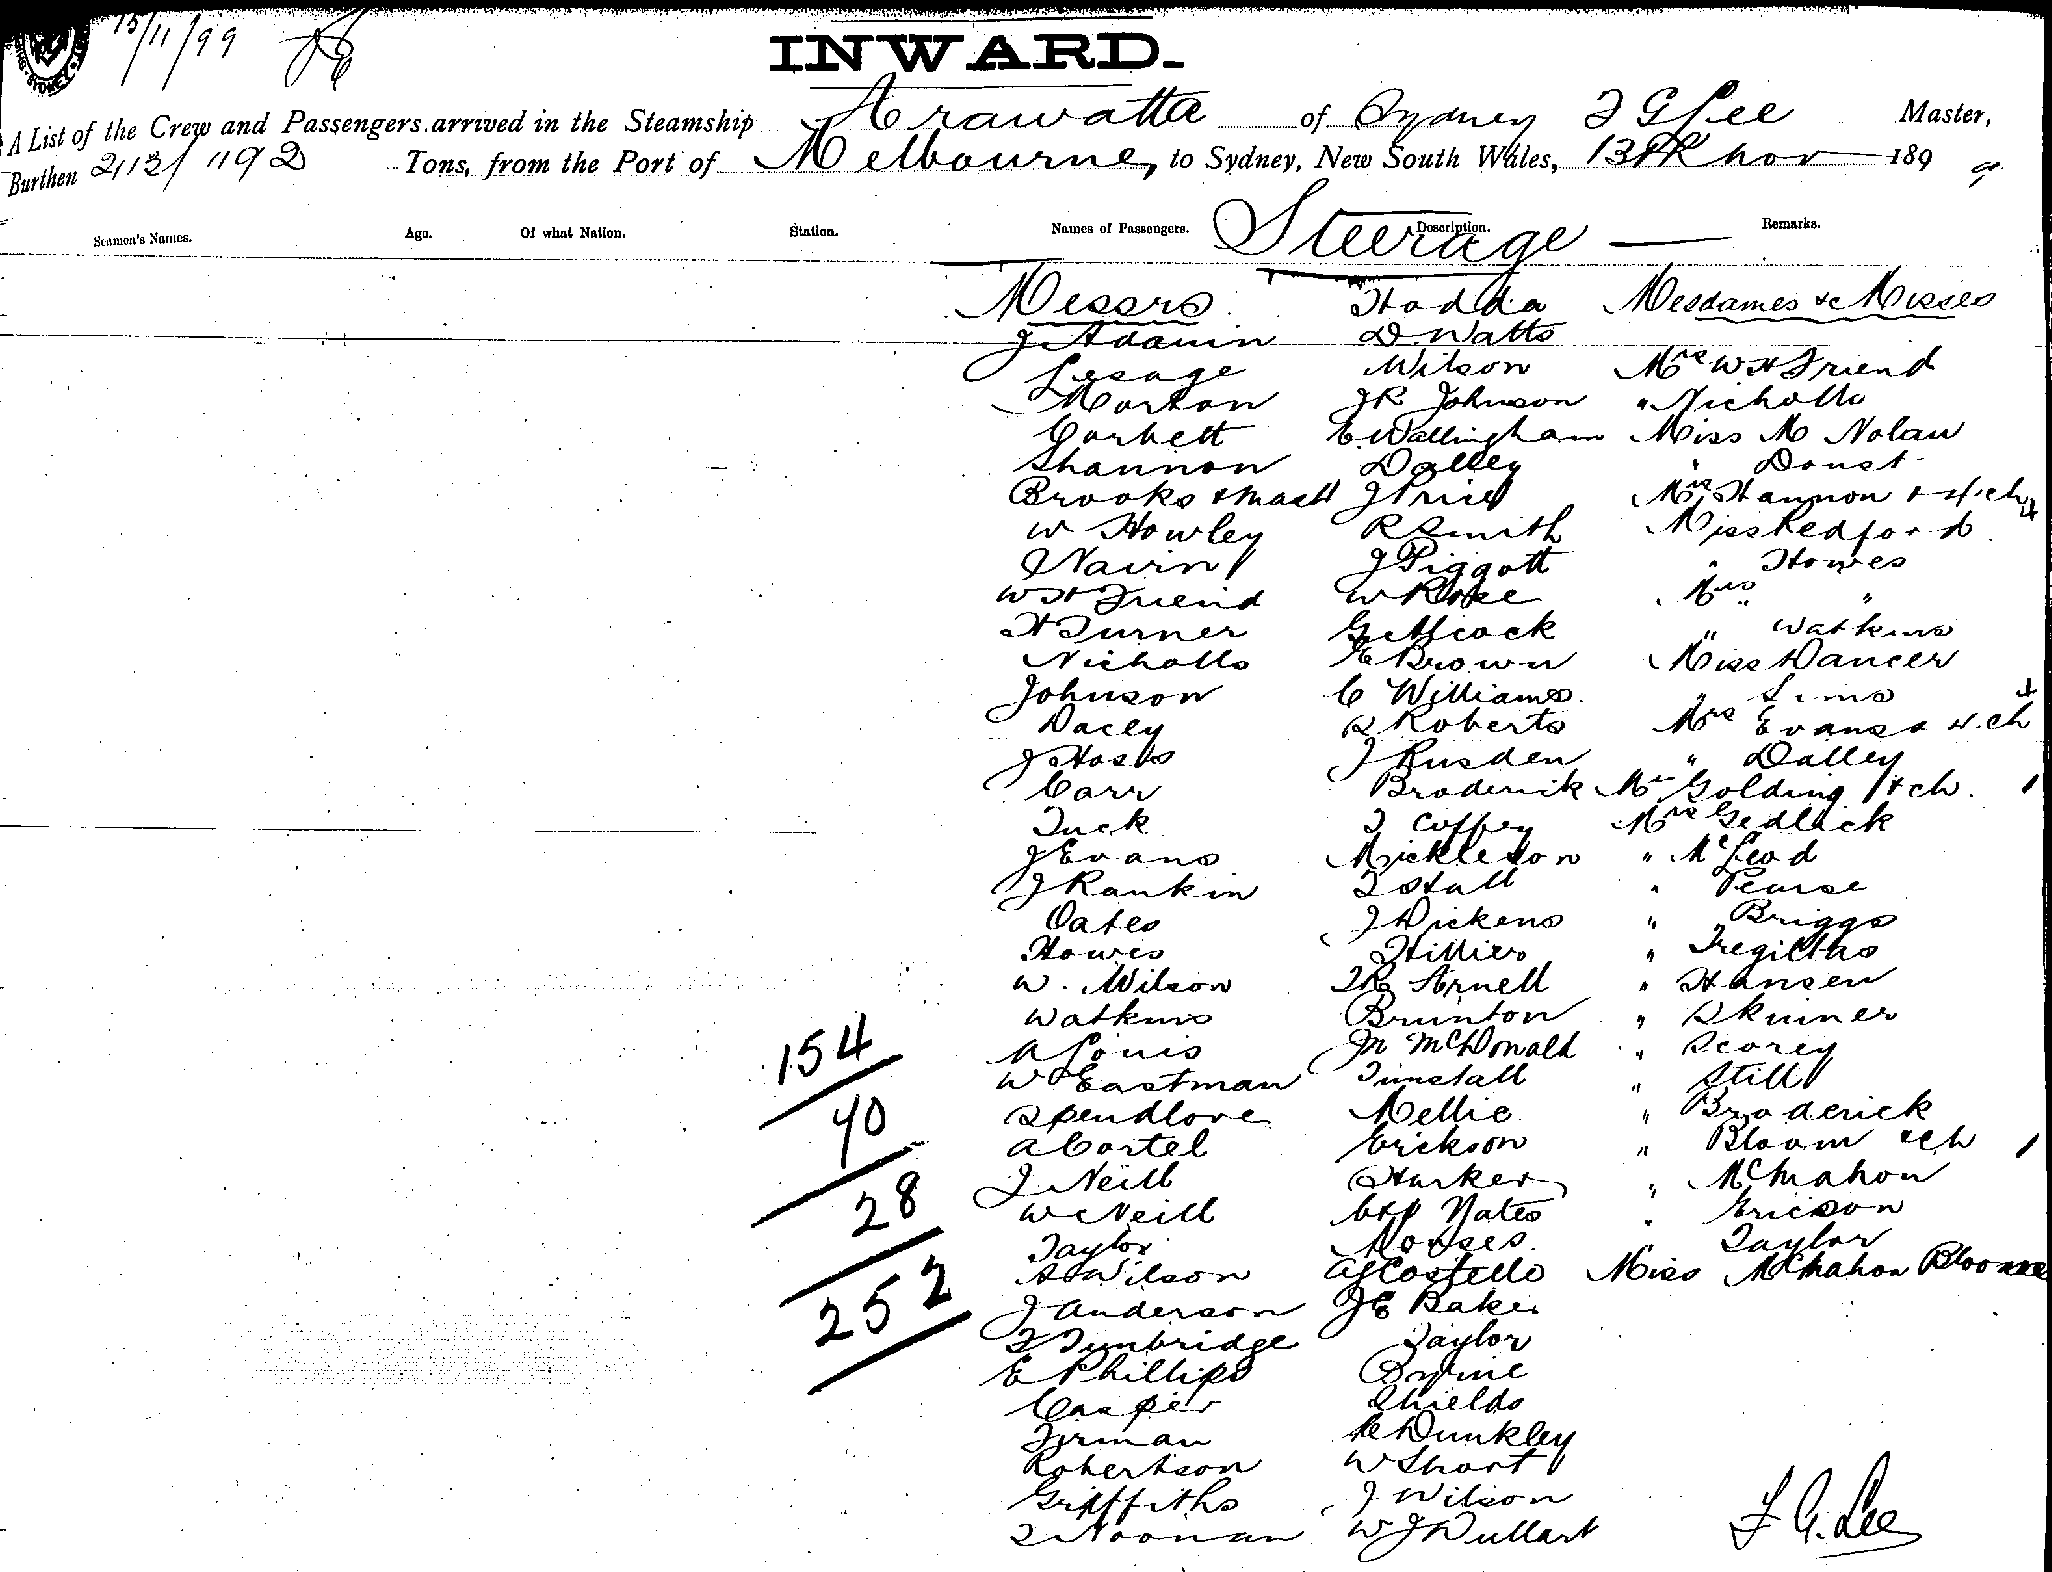 15/11/99
INWARD.
A List of the Crew and Passengers arrived in the Steamship Arawatta of Sydney F G Lee Master,
Burthen Tons, from the Port of Melbourne, to Sydney, New South Wales, 13th Nov 1899
Seamen's Names. Age. Of what Nation. Station. Names of Passengers. Description. Remarks.
Steerage
Messrs Hodda Mesdames & Misses
J Adamin D Watts
Lesage Wilson Mrs W H Friend
Morton J R Johnson " Nicholls
Corbett C Wallingham Miss M Nolan
Shannon Dalley " Doust
Brooks & Mast J Price Mrs Hannon & 4 ch 4
W Howley R Smith Miss Redford
J Nairn J Piggott " Howes
W H Friend W Rose Mrs "
H Turner G Allcock " Watkins
Nicholls E Brown Miss Dancer
Johnson C Williams " Sims
Dacey S Roberts Mrs Evans & 4 ch 4
J Hosts J Rusden " Dalley
Carr Broderick Mrs Golding 1 & ch. 1
Tuck T Coffey Mrs Gedlick
J Evans Mickleson " McLeod
J Rankin T Stall " Pearse
Oates J Dickens " Briggs
Howes Hillier " Tregilthas
W. Wilson T R Arnell " Hansen
Watkins Brunton " Skinner
154
A Louis M McDonald " Scorey
W Eastman Tunstall " Still
70
Spendlove Mellie " Broderick
A Cortel Erickson " Bloom & ch 1
J Neill Harker " McMahon
28
W Neill C & P Yates " Ericson
Taylor Moyses " Taylor
A Wilson A J Costello Miss McMahon Bloom
252
J Anderson J E Baker
T Tunbridge Taylor
E Phillips Bryine
Casper Shields
Firman R Dunkley
Robertson W Short
Griffiths J Wilson
T Noonan W J Dullart
F G. Lee